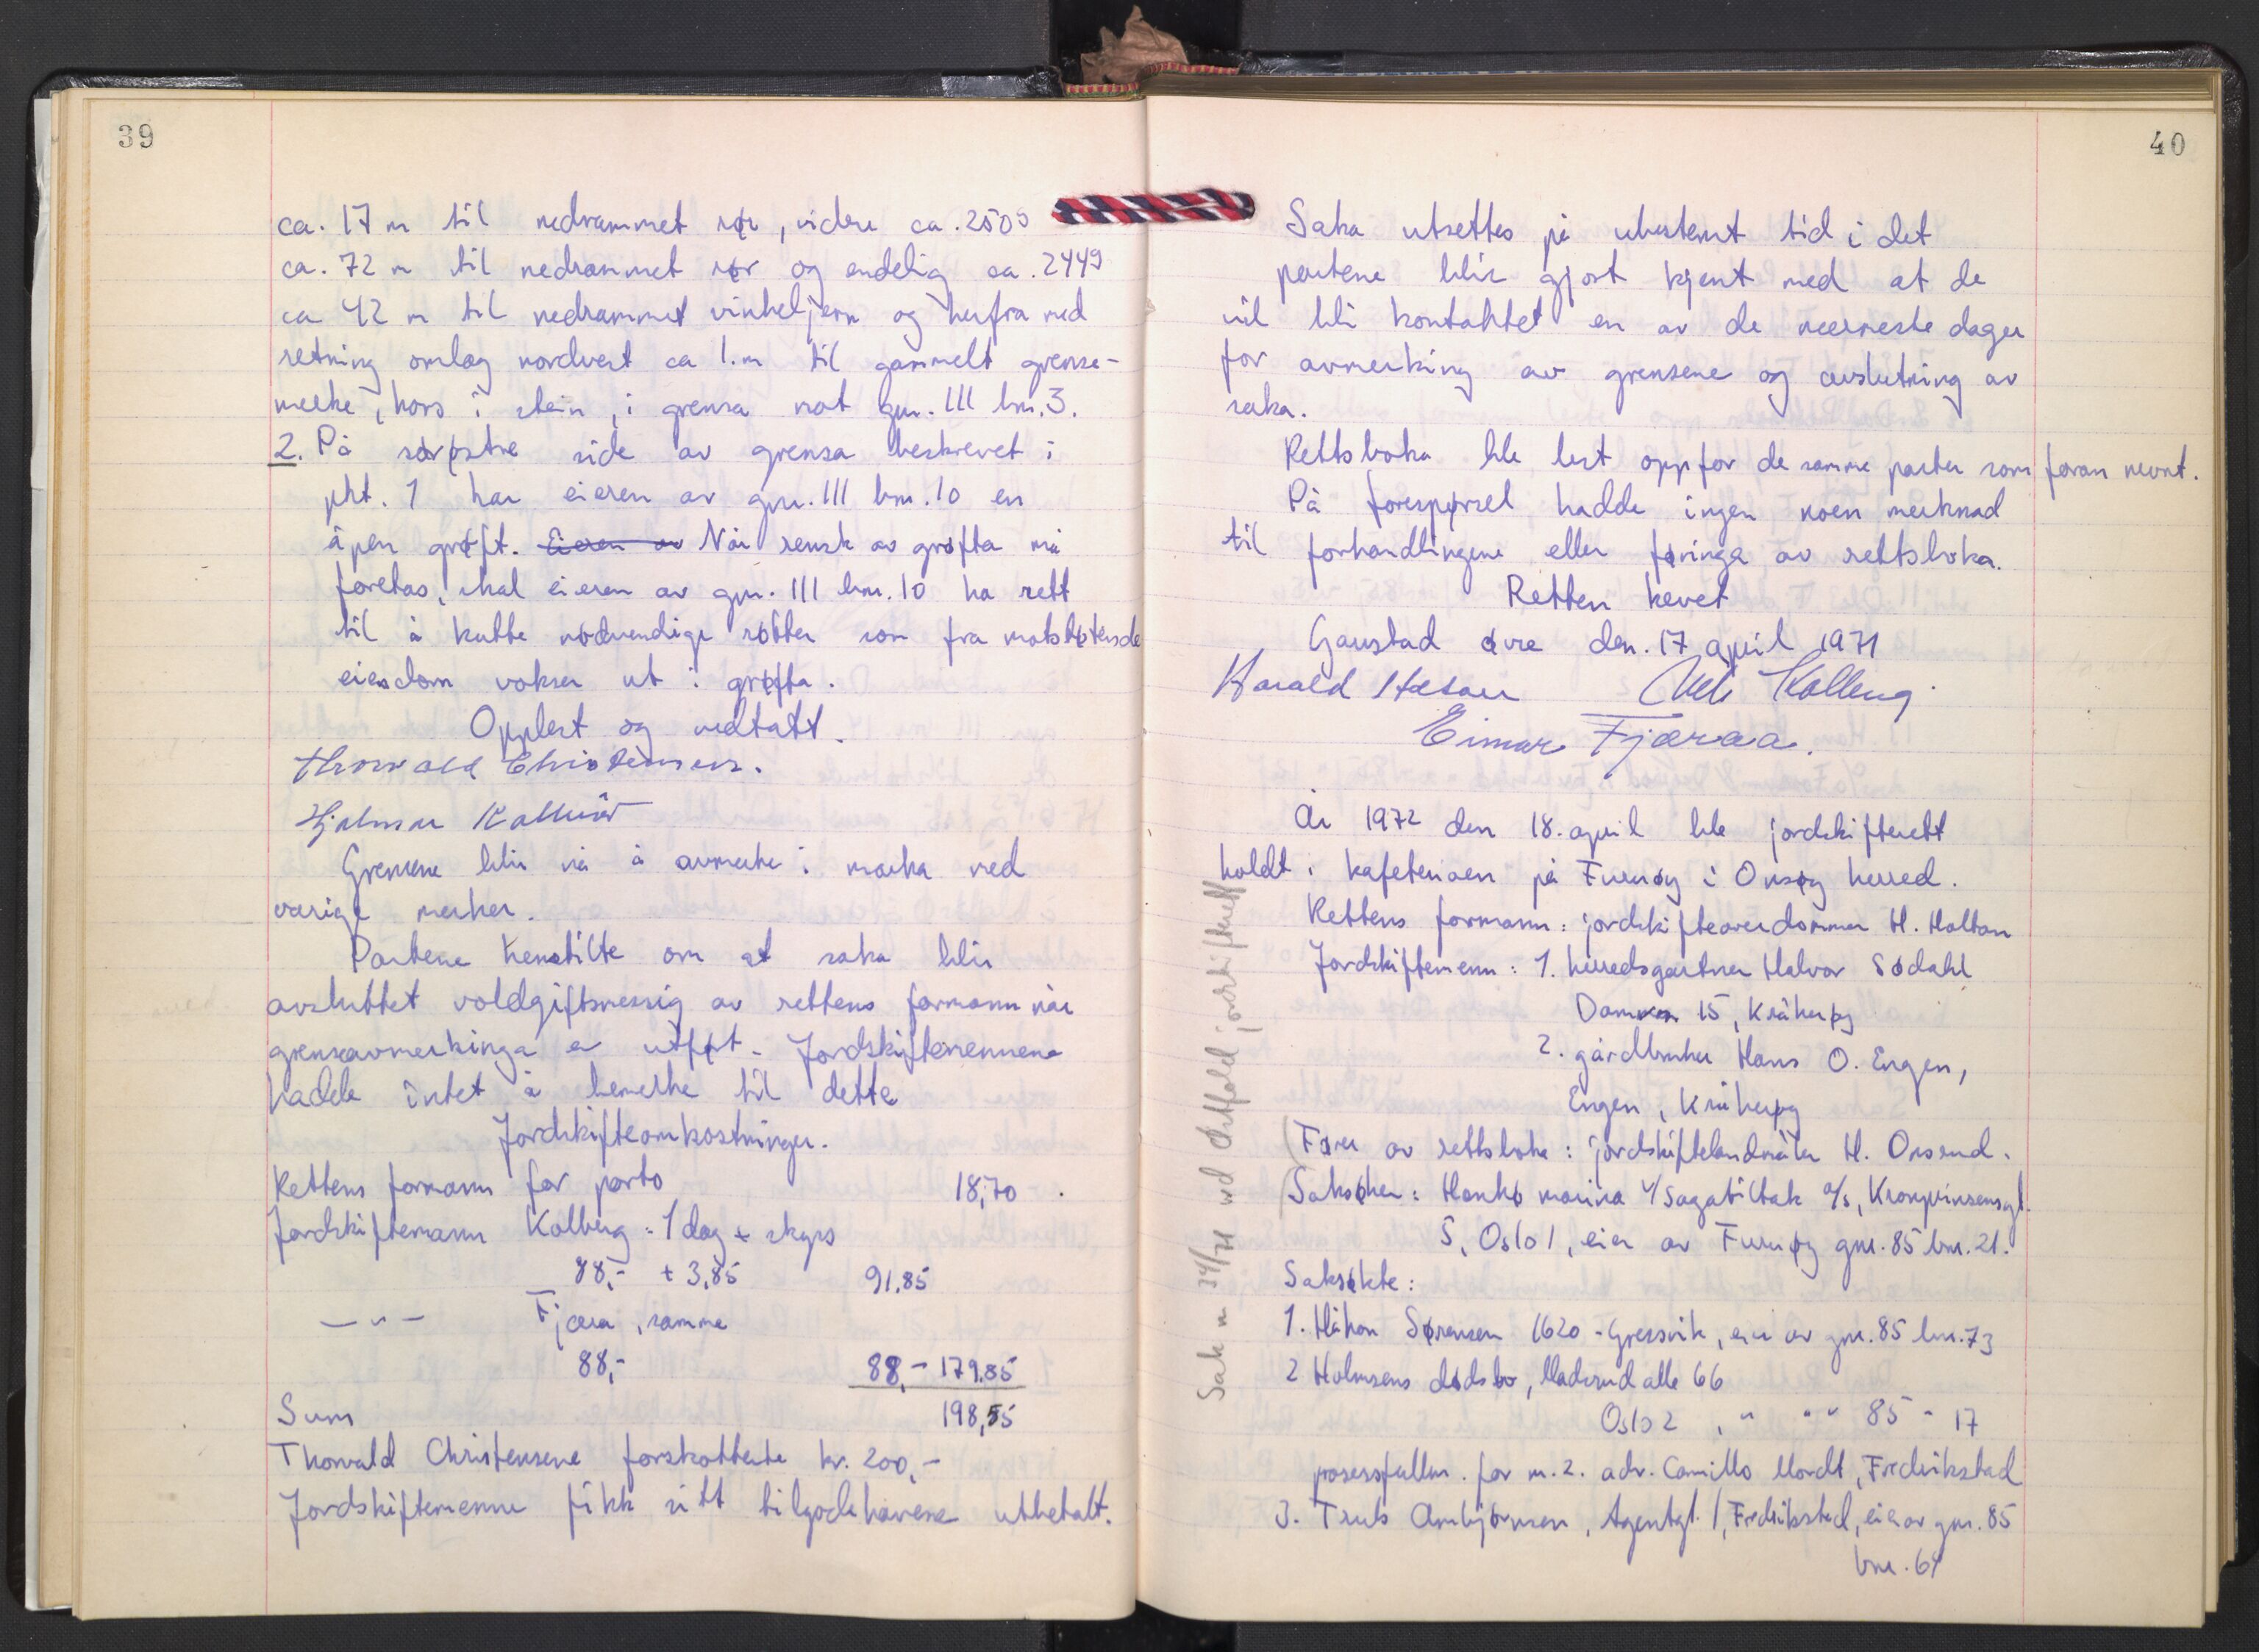 39
ca. 17 m til nedrammet rør, videre ca. 250⁰
ca. 72 m til nedrammet rør og endelig ca. 244⁹
ca 42 m til nedrammet vinkeljern og herfra med
retning omlag nordvest ca 1.m til gammelt grense-
merke, kors i stein, i grensa mot gnr. 111 bnr. 3.
2. På sørøstre side av grensa beskrevet i
pkt. 1 har eieren av gnr. 111 bnr. 10 en
åpen grøft. Eieren av Når rensk av grøfta må
foretas, skal eieren av gnr. 111 bnr. 10 ha rett
til å kutte nødvendige røtter som fra motstøtende
eiendom vokser ut i grøfta.
Opplest og vedtatt.
Thorvald Christensen.
Hjalmar
Grensene blir nå å avmerke i marka med
varige merker.
Partene henstilte om at saka blir
avsluttet voldgiftsmessig av rettens formann når
grenseavmerkinga er utført. Jordskiftemennene
hadde intet å bemerke til dette
Jordskifteomkostninger.
Rettens formann for porto 18,70
Jordskiftemann Kolberg: 1 dag + skyss
88,- + 3,85 91,85
— " — Fjæra, samme
88,- 88,- 179,85
Sum 198,55
Thorvald Christensene forskotterte kr. 200,-
Jordskiftemennene fikk sitt tilgodehavende utbetalt.
40
Saka utsettes på ubestemt tid i det
partene blir gjort kjent med at de
vil bli kontaktet en av de nærmeste dager
for avmerking av grensene og avslutning av
saka.
Rettsboka ble lest opp for de samme parter som foran nevnt.
På forespørsel hadde ingen noen merknad
til forhandlingene eller føringa av rettsboka.
Retten hevet
Gaustad øvre den. 17 april 1971
Harald Kolberg
Einar Fjæraa.
År 1972 den 18. april ble jordskifterett
holdt i kafeteriaen på Furuøy i Onsøy herred.
Rettens formann: jordskifteoverdommer H. Holtan
Jordskiftemenn: 1. herredsgartner Halvor Sødahl
Dammen 15, Kråkerøy
2. gårdbruker Hans O. Engen,
Engen, Kråkerøy
Fører av rettsboka: jordskiftelandmåler H. Onsrud.
Saksøker: Hankø marina v/Sagabiltak a/s, Kronprinsensgt.
5, Oslo 1, eier av Furuøy gnr. 85 bnr. 21.
Saksøkte:
1. Håkon Sørensen 1620 - Gressvik, eier av gnr. 85 bnr. 73
2 Holmsens dødsbo, Maderud alle 66
Oslo 2, " " " 85 " 17
prosessfullm. for nr. 2. adv. Camillo Mordt, Fredrikstad
3. Truls Ambjørnsen, Agentgt. 1, Fredrikstad, eier av gnr. 85
bnr. 64
Sak nr 34/71 ved Østfold jordskifterett